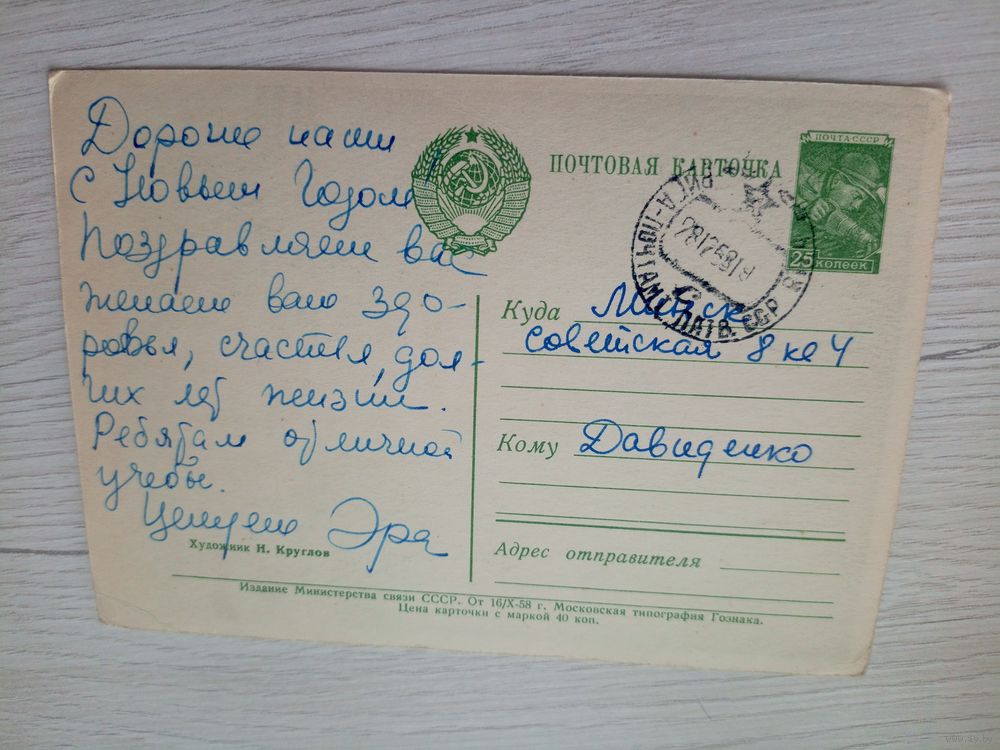 Дорогие наши
С Новым Годом!
Поздравляем вас
желаем вам здо-
ровья, счастья, дол-
гих лет жизни.
Ребятам отличной
учебы.
Целуем Эра
Художник Н. Круглов
ПОЧТОВАЯ КАРТОЧКА
ПОЧТА·СССР
25 КОПЕЕК
РИГА-ПОЧТАМТ ЛАТВ. ССР
281258
Куда Минск
Советская 8 кв 4
Кому Давиденко
Адрес отправителя
Издание Министерства связи СССР. От 16/X-58 г. Московская типография Гознака.
Цена карточки с маркой 40 коп.